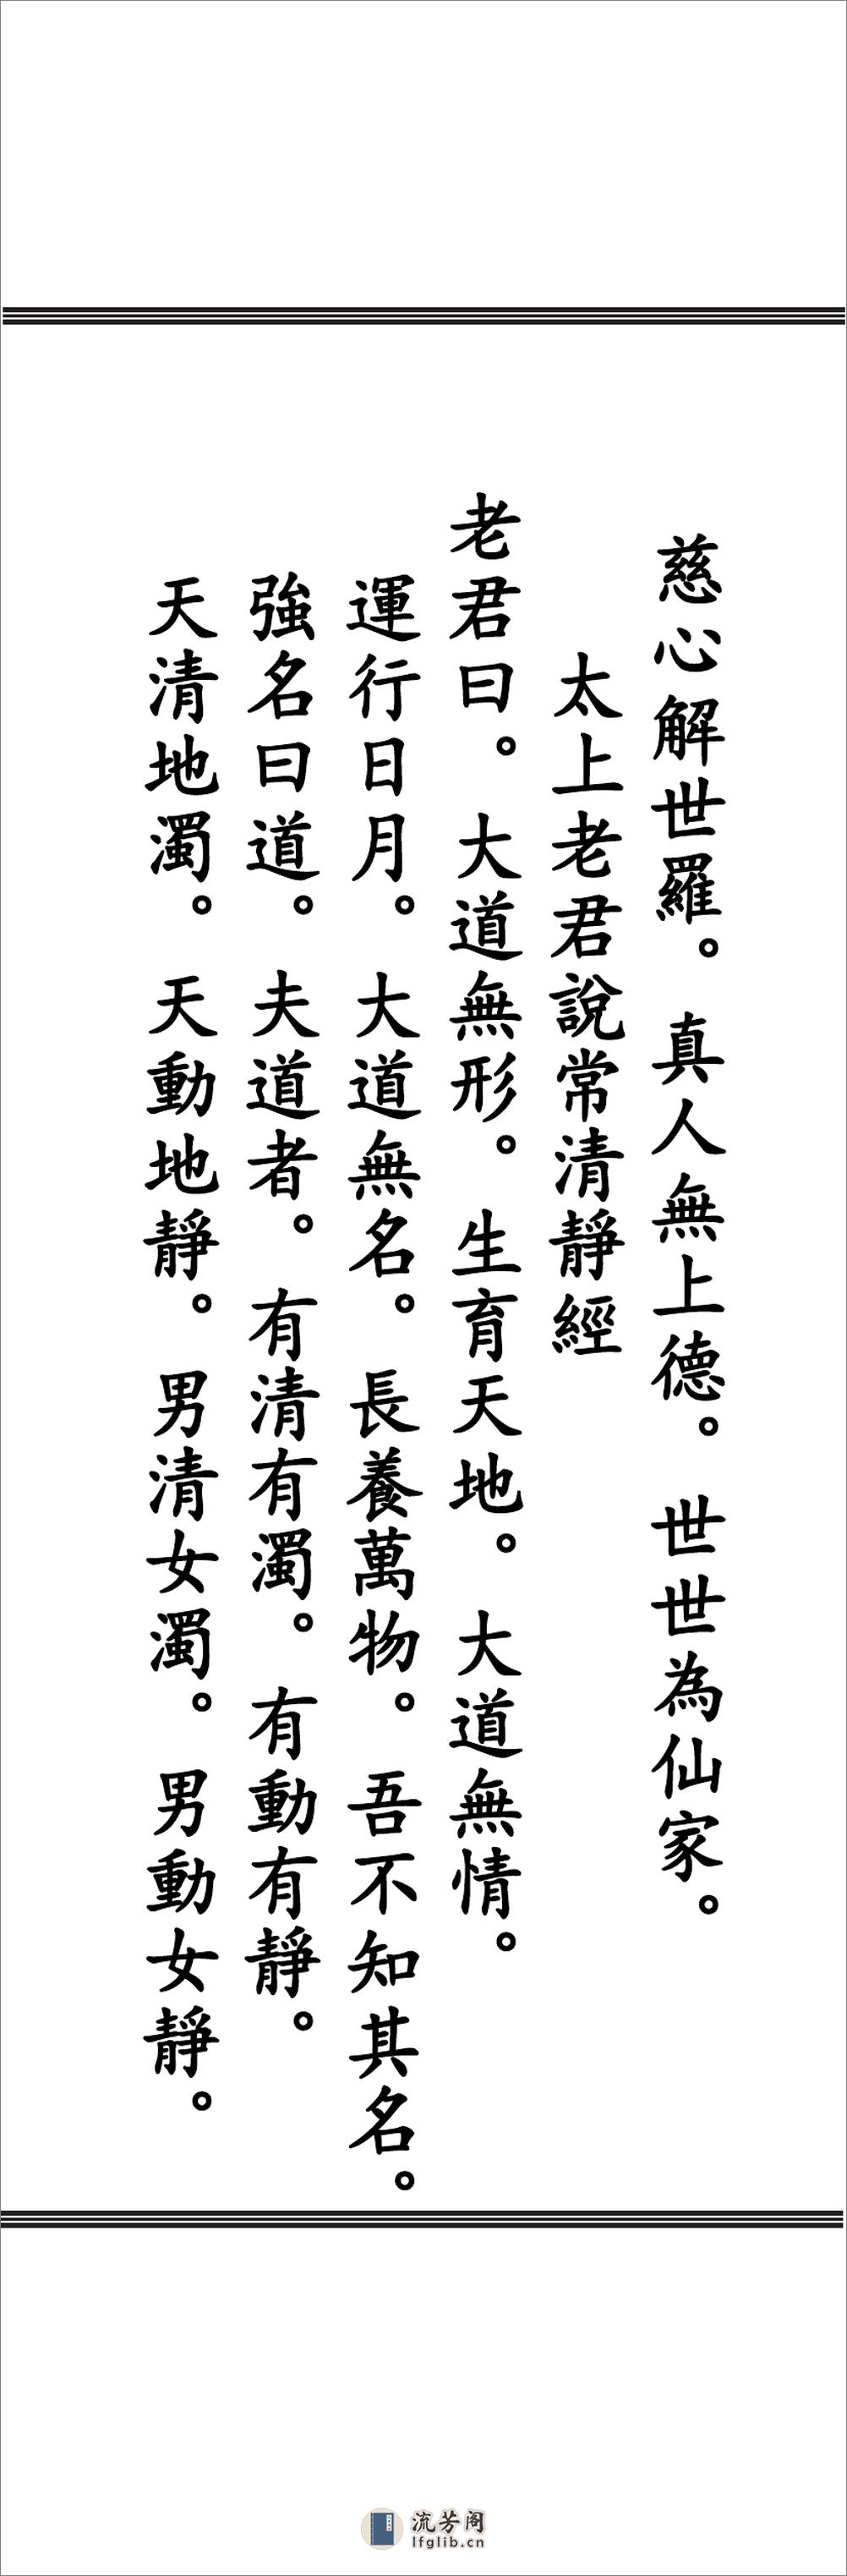 慈心解世羅。真人無上德。世世為仙家。
太上老君說常清靜經
老君曰。大道無形。生育天地。大道無情。
運行日月。大道無名。長養萬物。吾不知其名。
強名曰道。夫道者。有清有濁。有動有靜。
天清地濁。天動地靜。男清女濁。男動女靜。
流芳阁
lfglib.cn